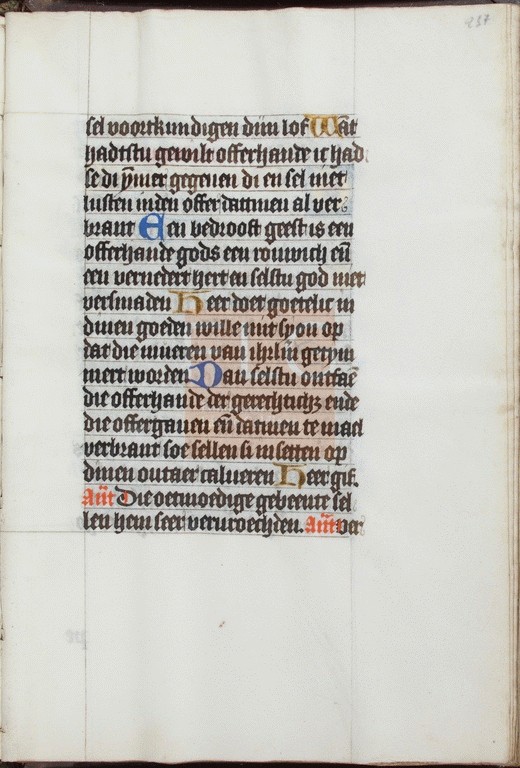 237
sel voortkundigen dijn lof Wāt
hadtstu gewilt offerhande ic had
se di ym̄er gegeuen di en sel niet
lusten inden offer datmen al ver
brant Een bedrooft geest is een
offerhande gods een rouwich eñ
een vernedert hert en selstu god niet
versmaden Heer doet goetelic in
dinen goeden wille mit syon op
dat die mueren van ihrl̄m getym
mert worden Dan selstu ontfaē
die offerhande der gerechtich; ende
die offergauen eñ datmen te mael
verbrant soe sellen si in setten op
dinen outaer calueren Heer gif.
Añt Die oetmoedige gebeente sel
len hem seer vervroechden. Añt ver